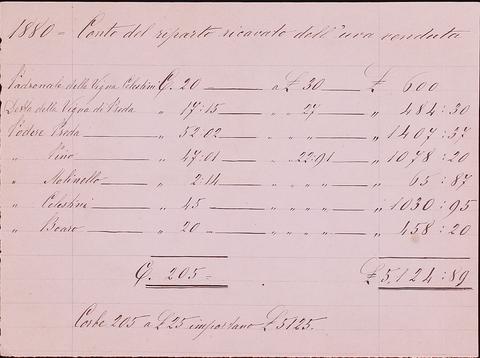 1880 = Conto del riparto ricavato dell'uva venduta
Padronale della Vigna Celestini C. 20 a £ 30 £ 600
Detta della Vigna di Preda " 17:15 " " 27 " 484:30
Podere Preda " 52:02 " " " " 1407:37
" Pino " 47:01 " 22:91 " 1078:20
" Molinello " 2:14 " " " " 65:87
" Celestini " 45 " " " " 1030:95
" Boaro " 20 " " " " 458:20
C. 205 = £ 5,124:89
Corbe 205 a £ 25 importano £ 5125.